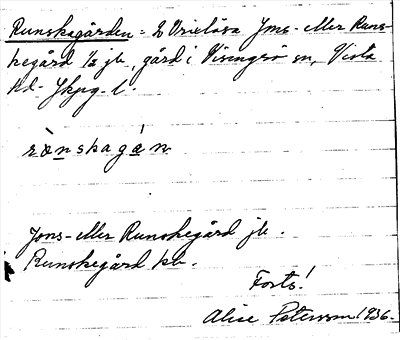 Runskagården = 2 Vrixlösa Jons- eller Runs-
kegård 1/2 jb, gård i Visingsö sn, Vista
hd. Jkpg. l.
rònskagán
Jons- eller Runskegård jb.
Runskegård kb.
Forts!
Alice Petersson 1936.